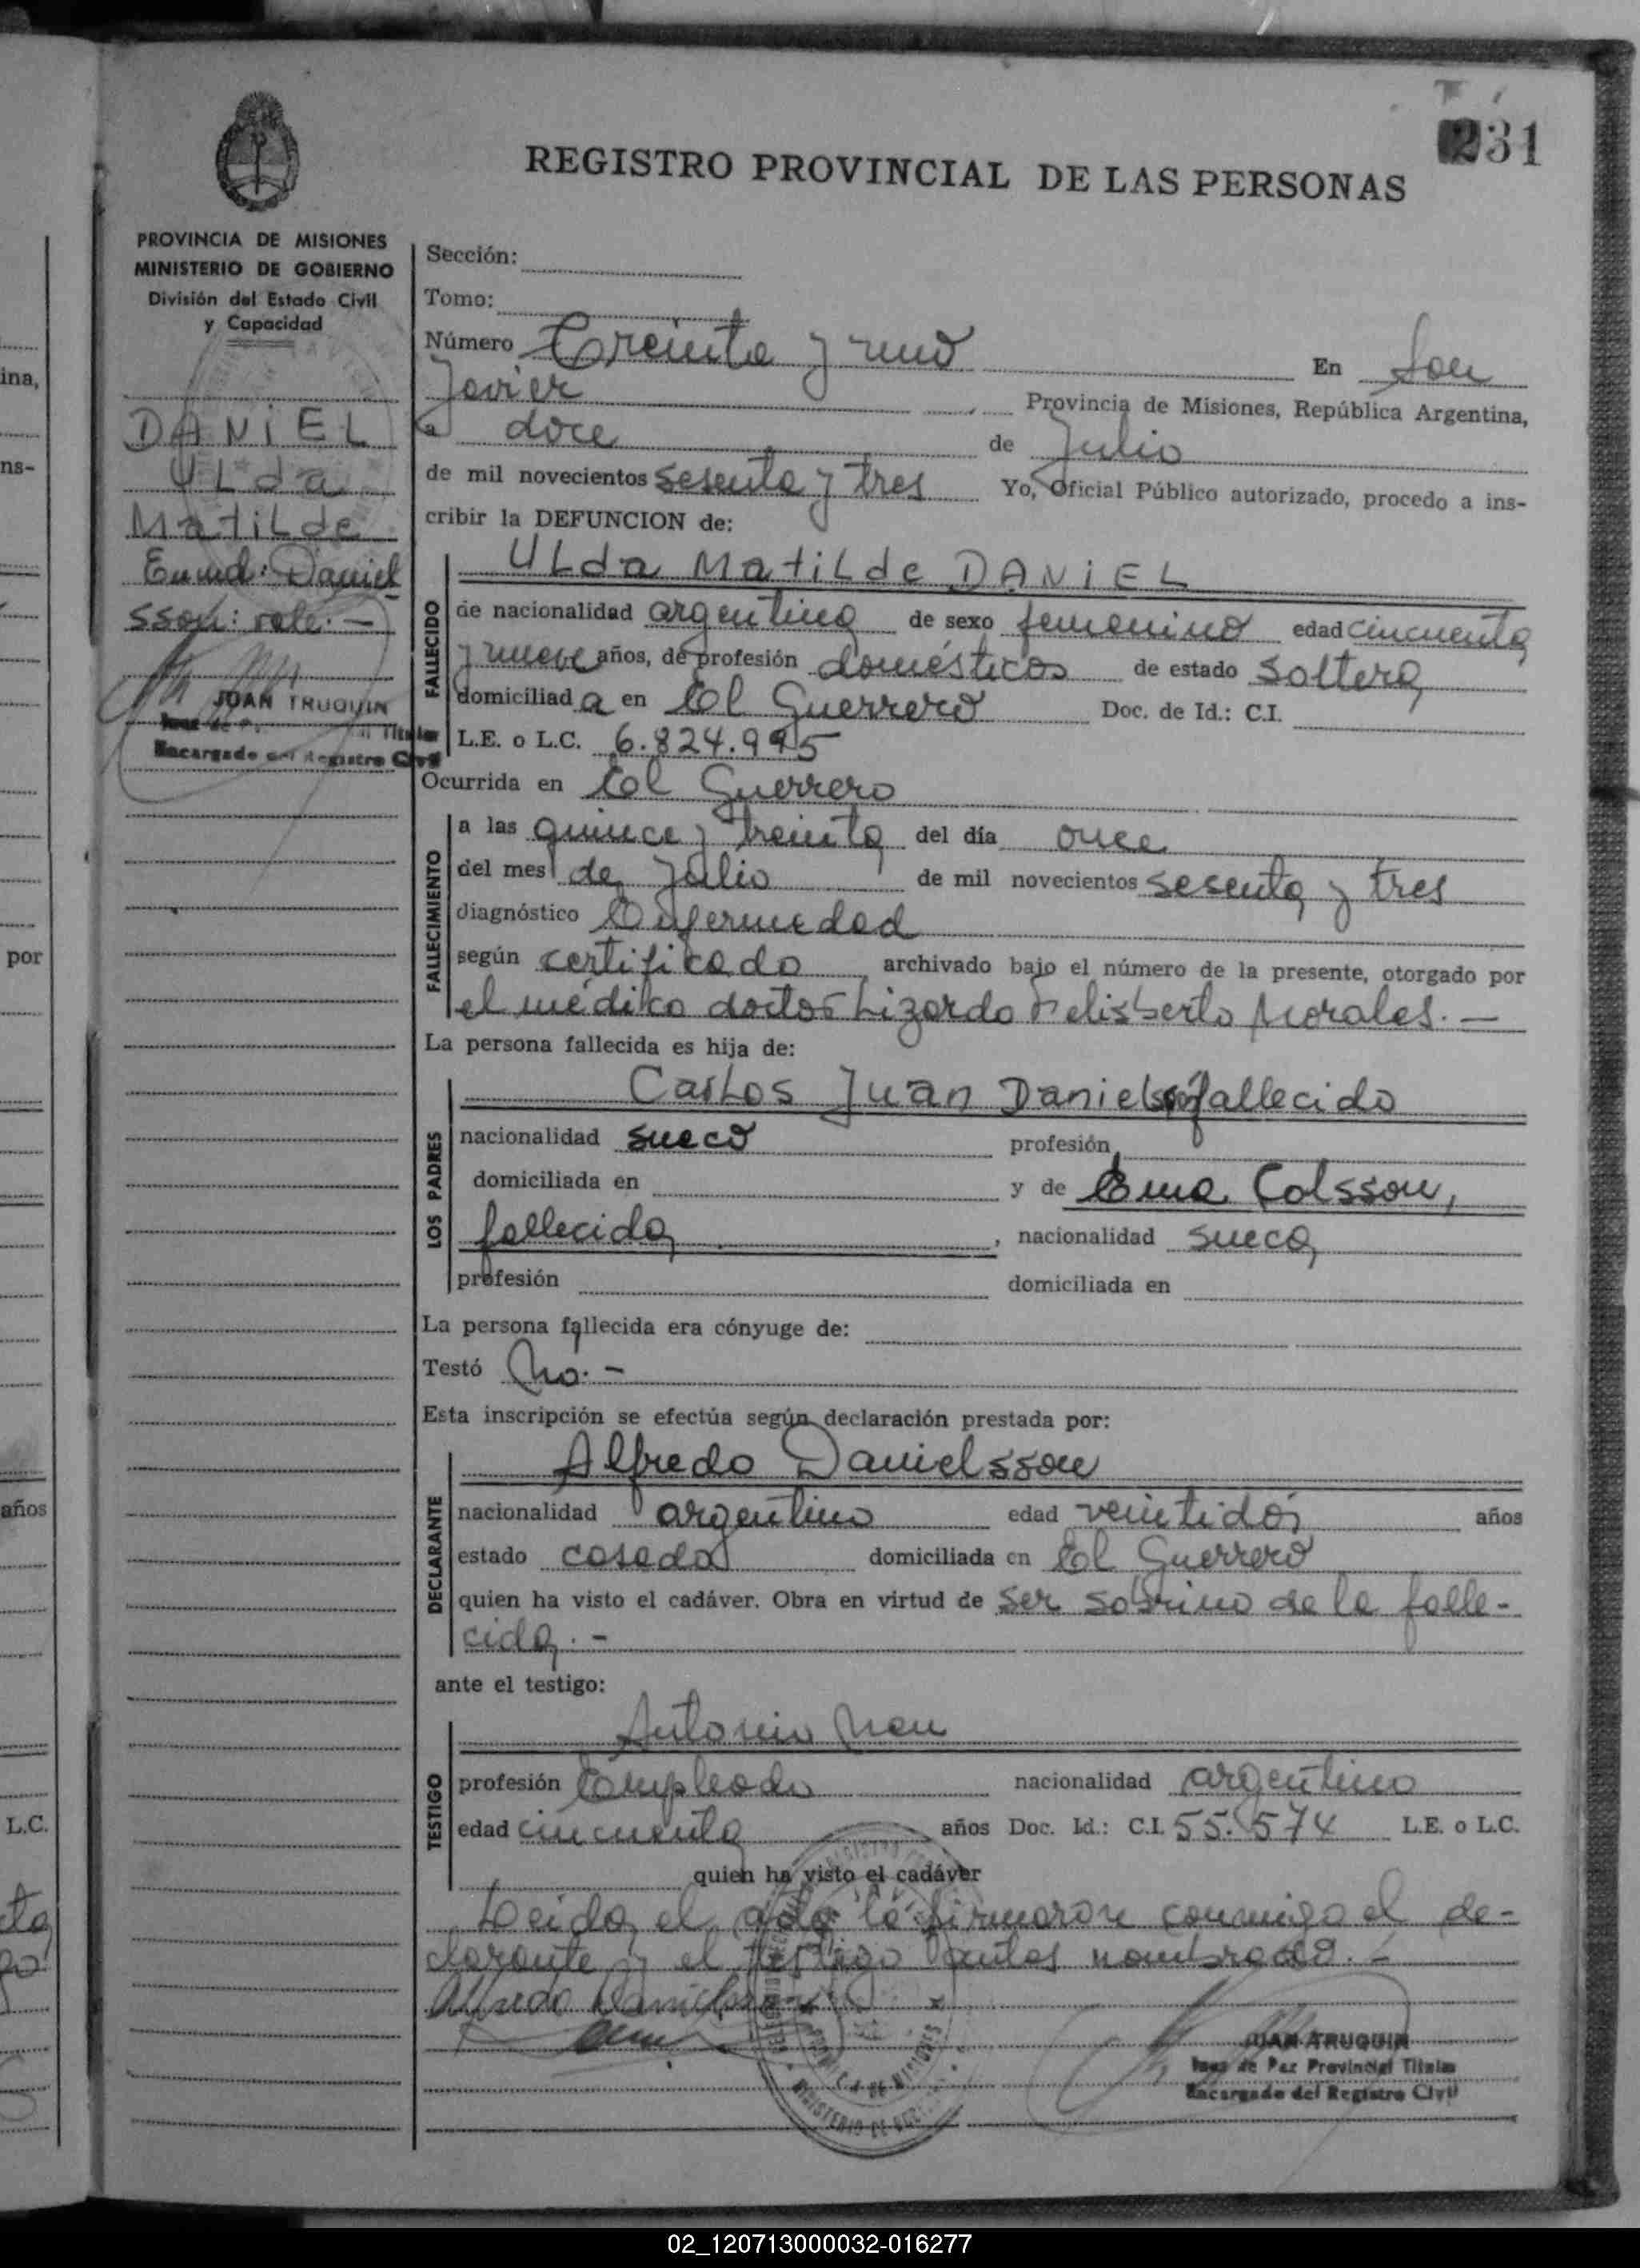 231
REGISTRO PROVINCIAL DE LAS PERSONAS
PROVINCIA DE MISIONES
MINISTERIO DE GOBIERNO
División del Estado Civil
y Capacidad
DANIEL
ULda
MatiLde
Enmd: Daniel
sson: vale. —
JUAN TRUQUIN
Titular
Encargado del Registro Civil
Sección:
Tomo:
Número Treinta y uno En San
Javier Provincia de Misiones, República Argentina,
a doce de Julio
de mil novecientos sesenta y tres Yo, Oficial Público autorizado, procedo a ins-
cribir la DEFUNCION de:
FALLECIDO
ULda MatiLde DANIEL
de nacionalidad argentina de sexo femenino edad cincuenta
y nueve años, de profesión domésticos de estado soltera
domiciliad a en El Guerrero Doc. de Id.: C.I.
L.E. o L.C. 6.824.995
Ocurrida en El Guerrero
FALLECIMIENTO
a las quince y treinta del día once
del mes de Julio de mil novecientos sesenta y tres
diagnóstico Enfermedad
según certificado archivado bajo el número de la presente, otorgado por
el médico doctor Lizardo Felisberto Morales. —
La persona fallecida es hija de:
LOS PADRES
CarLos Juan Danielsson fallecido
nacionalidad sueco profesión
domiciliada en y de Ema Colsson,
fallecida, nacionalidad sueca
profesión domiciliada en
La persona fallecida era cónyuge de:
Testó No. —
Esta inscripción se efectúa según declaración prestada por:
DECLARANTE
Alfredo Danielsson
nacionalidad argentino edad veintidós años
estado casado domiciliada en El Guerrero
quien ha visto el cadáver. Obra en virtud de ser sobrino de la falle-
cida. —
ante el testigo:
TESTIGO
Antonio
profesión Empleado nacionalidad argentino
edad cincuenta años Doc. Id.: C.I. 55.574 L.E. o L.C.
quien ha visto el cadáver
Leida el acta la firmaron conmigo el de-
clarante y el testigo antes nombrados. —
Alfredo Danielsson
JUAN TRUQUIN
Juez de Paz Provincial Titular
Encargado del Registro Civil
ina,
ns-
por
años
L.C.
02_120713000032-016277